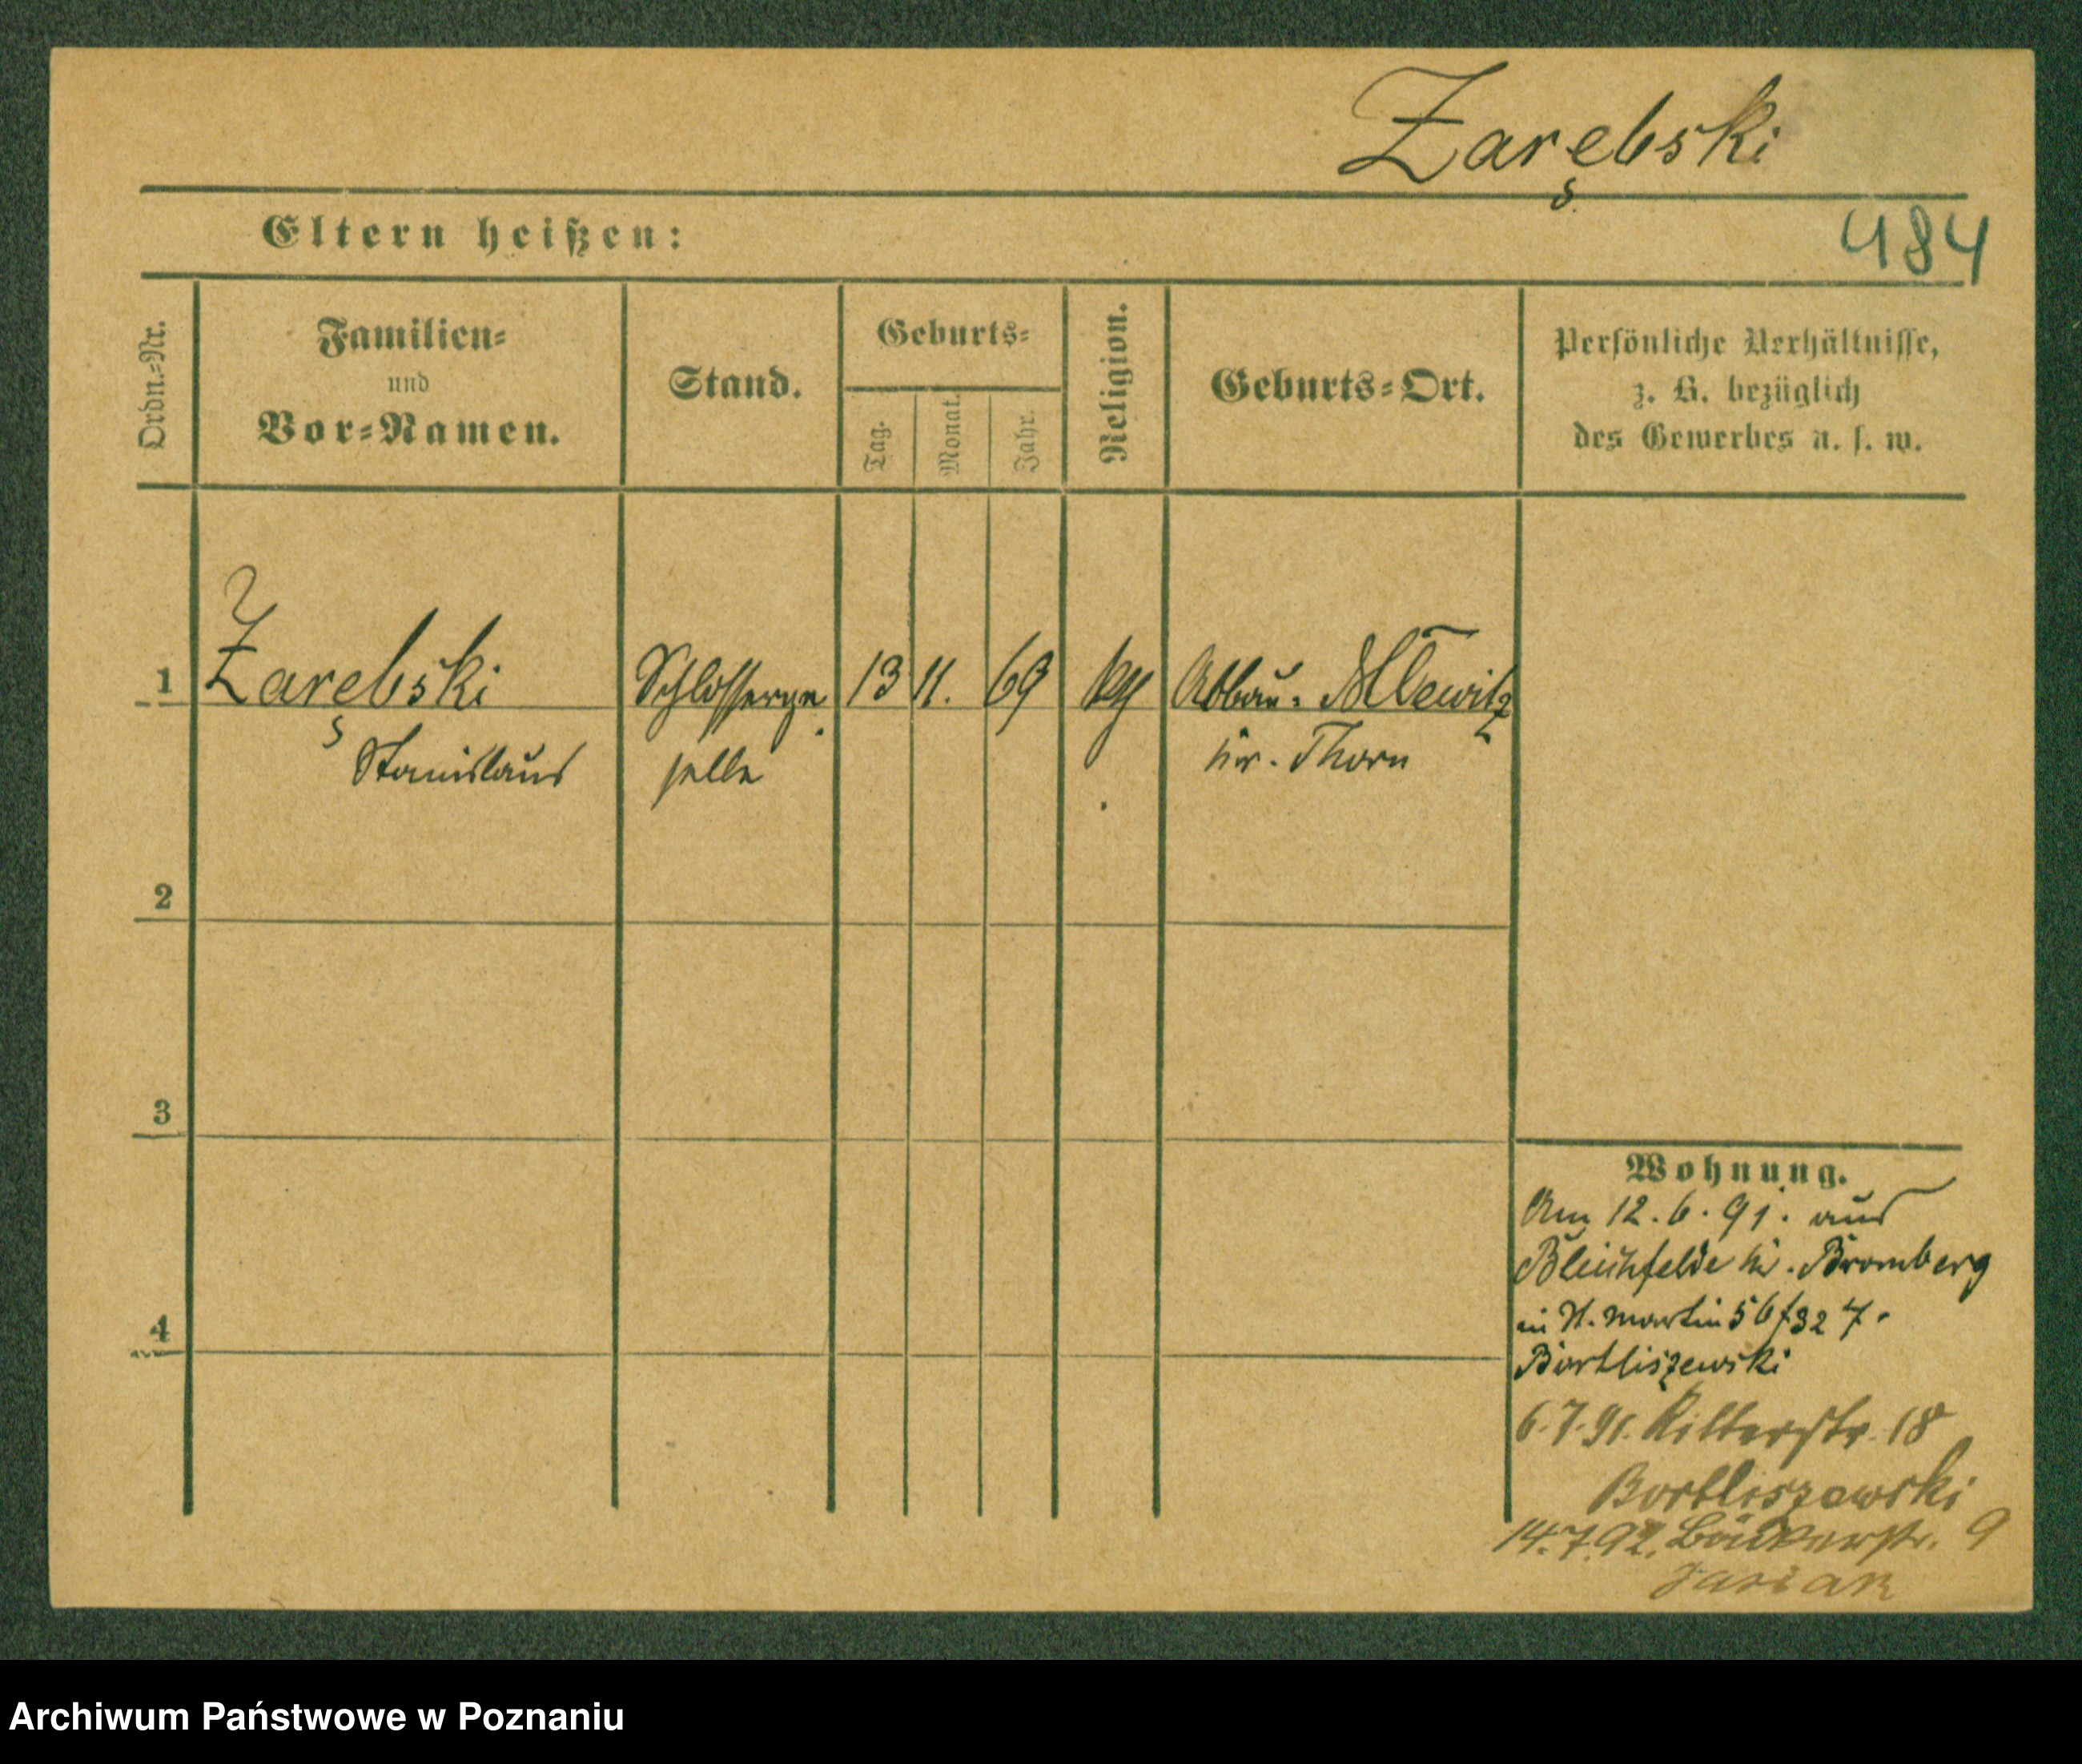 Zarębski
Eltern heißen:
484
Ordn.-Nr.
Familien-
und
Vor-Namen.
Stand.
Geburts-
Tag.
Monat.
Jahr.
Religion.
Geburts-Ort.
Persönliche Verhältnisse,
z. B. bezüglich
des Gewerbes u. s. w.
1 Zarębski Schlosserge 13 11. 69 kth Abbau- Mlewitz
Stanislaus selle Kr. Thorn
2
3
4
Wohnung.
Am 12.6.91. aus
Bleichfelde Kr. Bromberg
in St. Martin 56/327.
Bartliszewski
6.7.91. Ritterstr. 18
Bartliszewski
14.7.92. Bäckerstr. 9
Jasiak
Archiwum Państwowe w Poznaniu